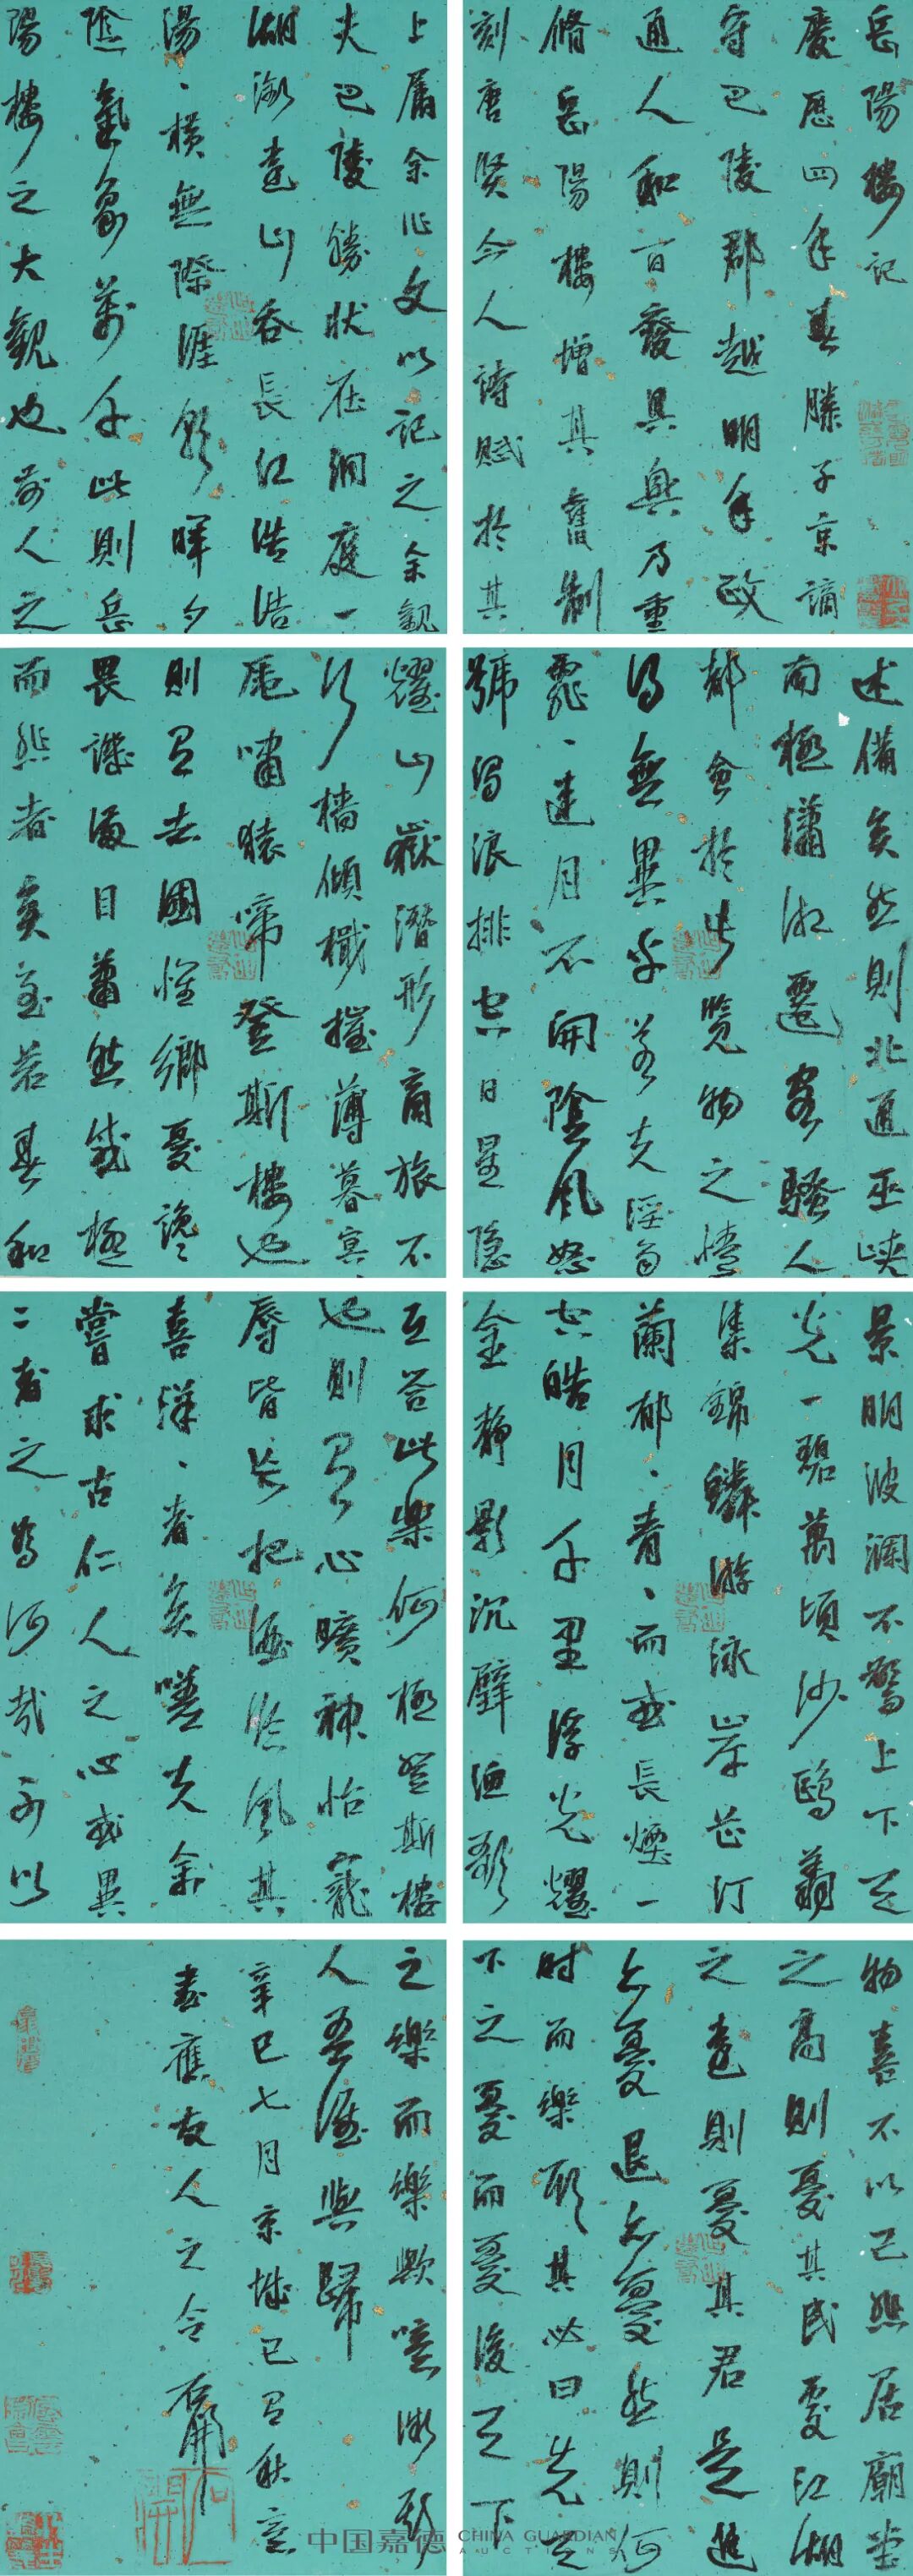 岳陽樓記
慶歷四年春滕子京謫
守巴陵郡越明年政
通人和百廢具興乃重
脩岳陽樓增其舊制
刻唐賢今人詩賦於其
上屬余作文以記之余觀
夫巴陵勝狀在洞庭一
湖銜遠山吞長江浩浩
湯、橫無際涯朝暉夕
陰氣象萬千此則岳
陽樓之大觀也前人之
述備矣然則北通巫峽
南極瀟湘遷客騷人
都會於此覽物之情
得無異乎若夫淫雨
霏、連月不開陰風怒
號濁浪排空日星隱
耀山嶽潛形商旅不
行檣傾檝摧薄暮冥、
虎嘯猿啼登斯樓也
則有去國懷鄉憂讒
畏譏滿目蕭然感極
而悲者矣至若春和
景明波瀾不驚上下天
光一碧萬頃沙鷗翔
集錦鱗游泳岸芷汀
蘭郁、青、而或長煙一
空皓月千里浮光耀
金靜影沉璧漁歌
互答此樂何極登斯樓
也則有心曠神怡寵
辱皆忘把酒臨風其
喜洋、者矣嗟夫余
嘗求古仁人之心或異
二者之為何哉不以
物喜不以己悲居廟堂
之高則憂其民處江湖
之遠則憂其君是進
亦憂退亦憂然則何
時而樂耶其必曰先天
下之憂而憂後天下
之樂而樂歟噫微斯
人吾誰與歸
辛巳七月京城已有秋意
書應友人之令 石開
中国嘉德 CHINA GUARDIAN
AUCTIONS